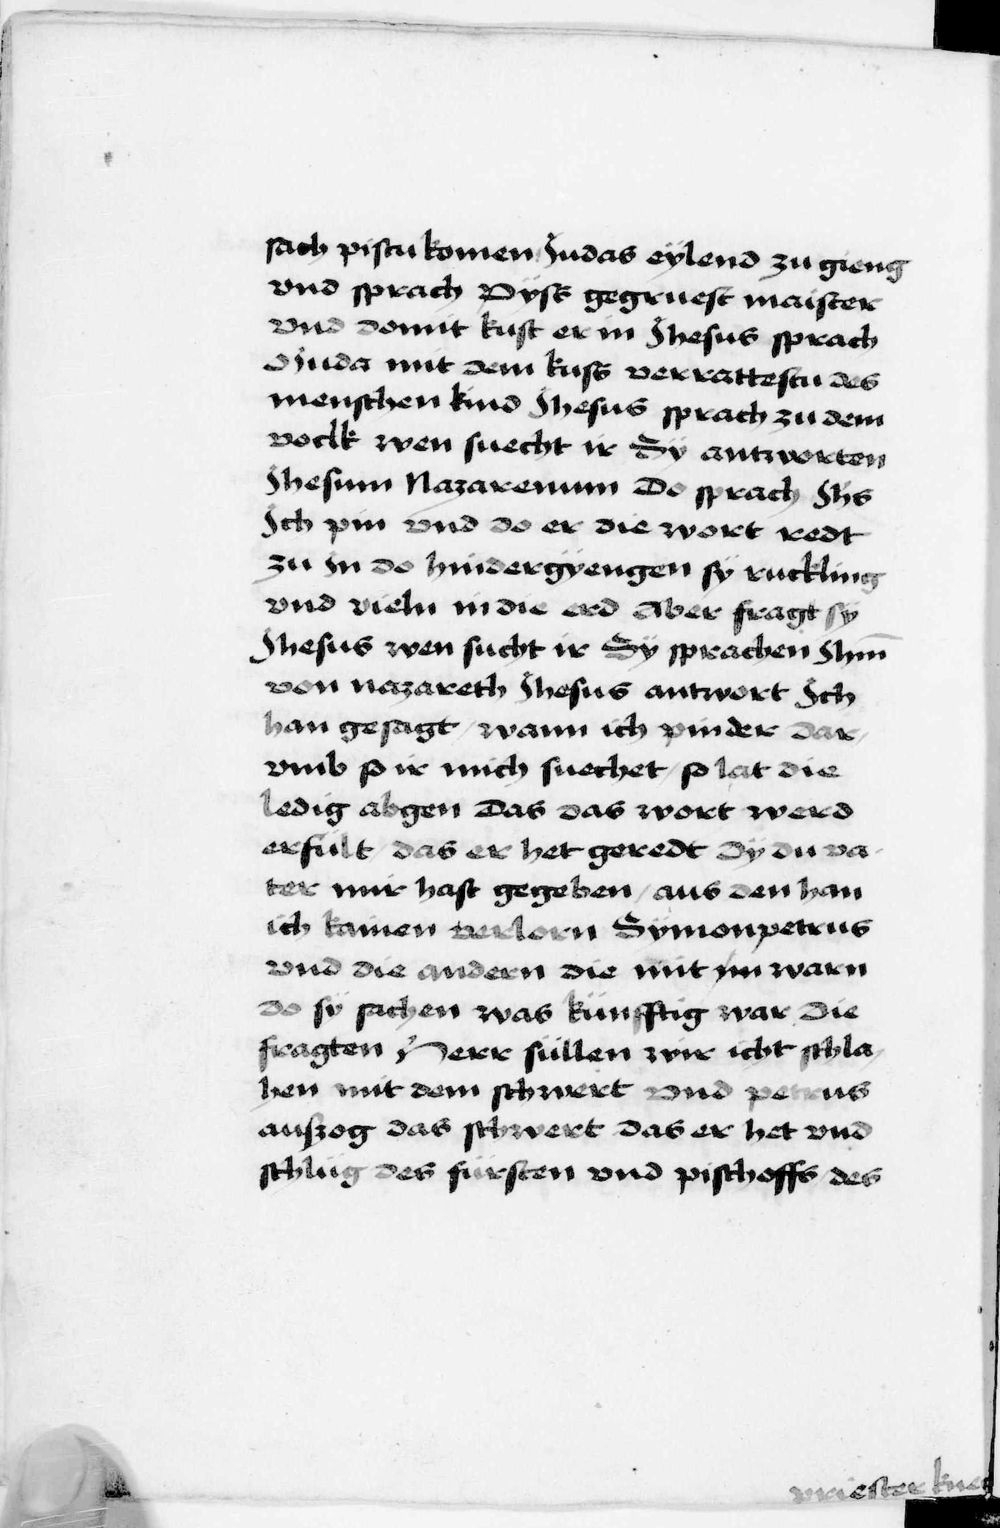 sach pistu komen Judas eÿlend zu gieng
vnd sprach Pÿst gegruest maister
vnd domit kust er in Jhesus sprach
O Juda mit dem kuss verrattestu des
menschen kind Jhesus sprach zu dem
voclk wen suecht ir Sÿ antworten
Jhesum Nazarenum Do sprach Jhs
Ich pin vnd do er die wort redt
zu in do hindergÿengen sÿ ruckling
vnd vieln in die erd Aber fragt sÿ
Jhesus wen sucht ir Sÿ sprachen Jhm̄
von nazareth Jhesus antwort Ich
han gesagt / wann ich pin der dar/
vmb so ir mich suechet / so lat die
ledig abgen Das das wort werd
erfült / das er het geredt Dÿ du va-
ter mir hast gegeben / aus den han
ich kainen verlorn Sÿmon petrus
vnd die andern die mit im warn
do sÿ sachen was künfftig war Die
fragten Herr süllen wir icht schla/
hen mit dem schwert Vnd petrus
auszog das schwert das er het vnd
schlüg des fürsten vnd pischoffs / des
priester knec